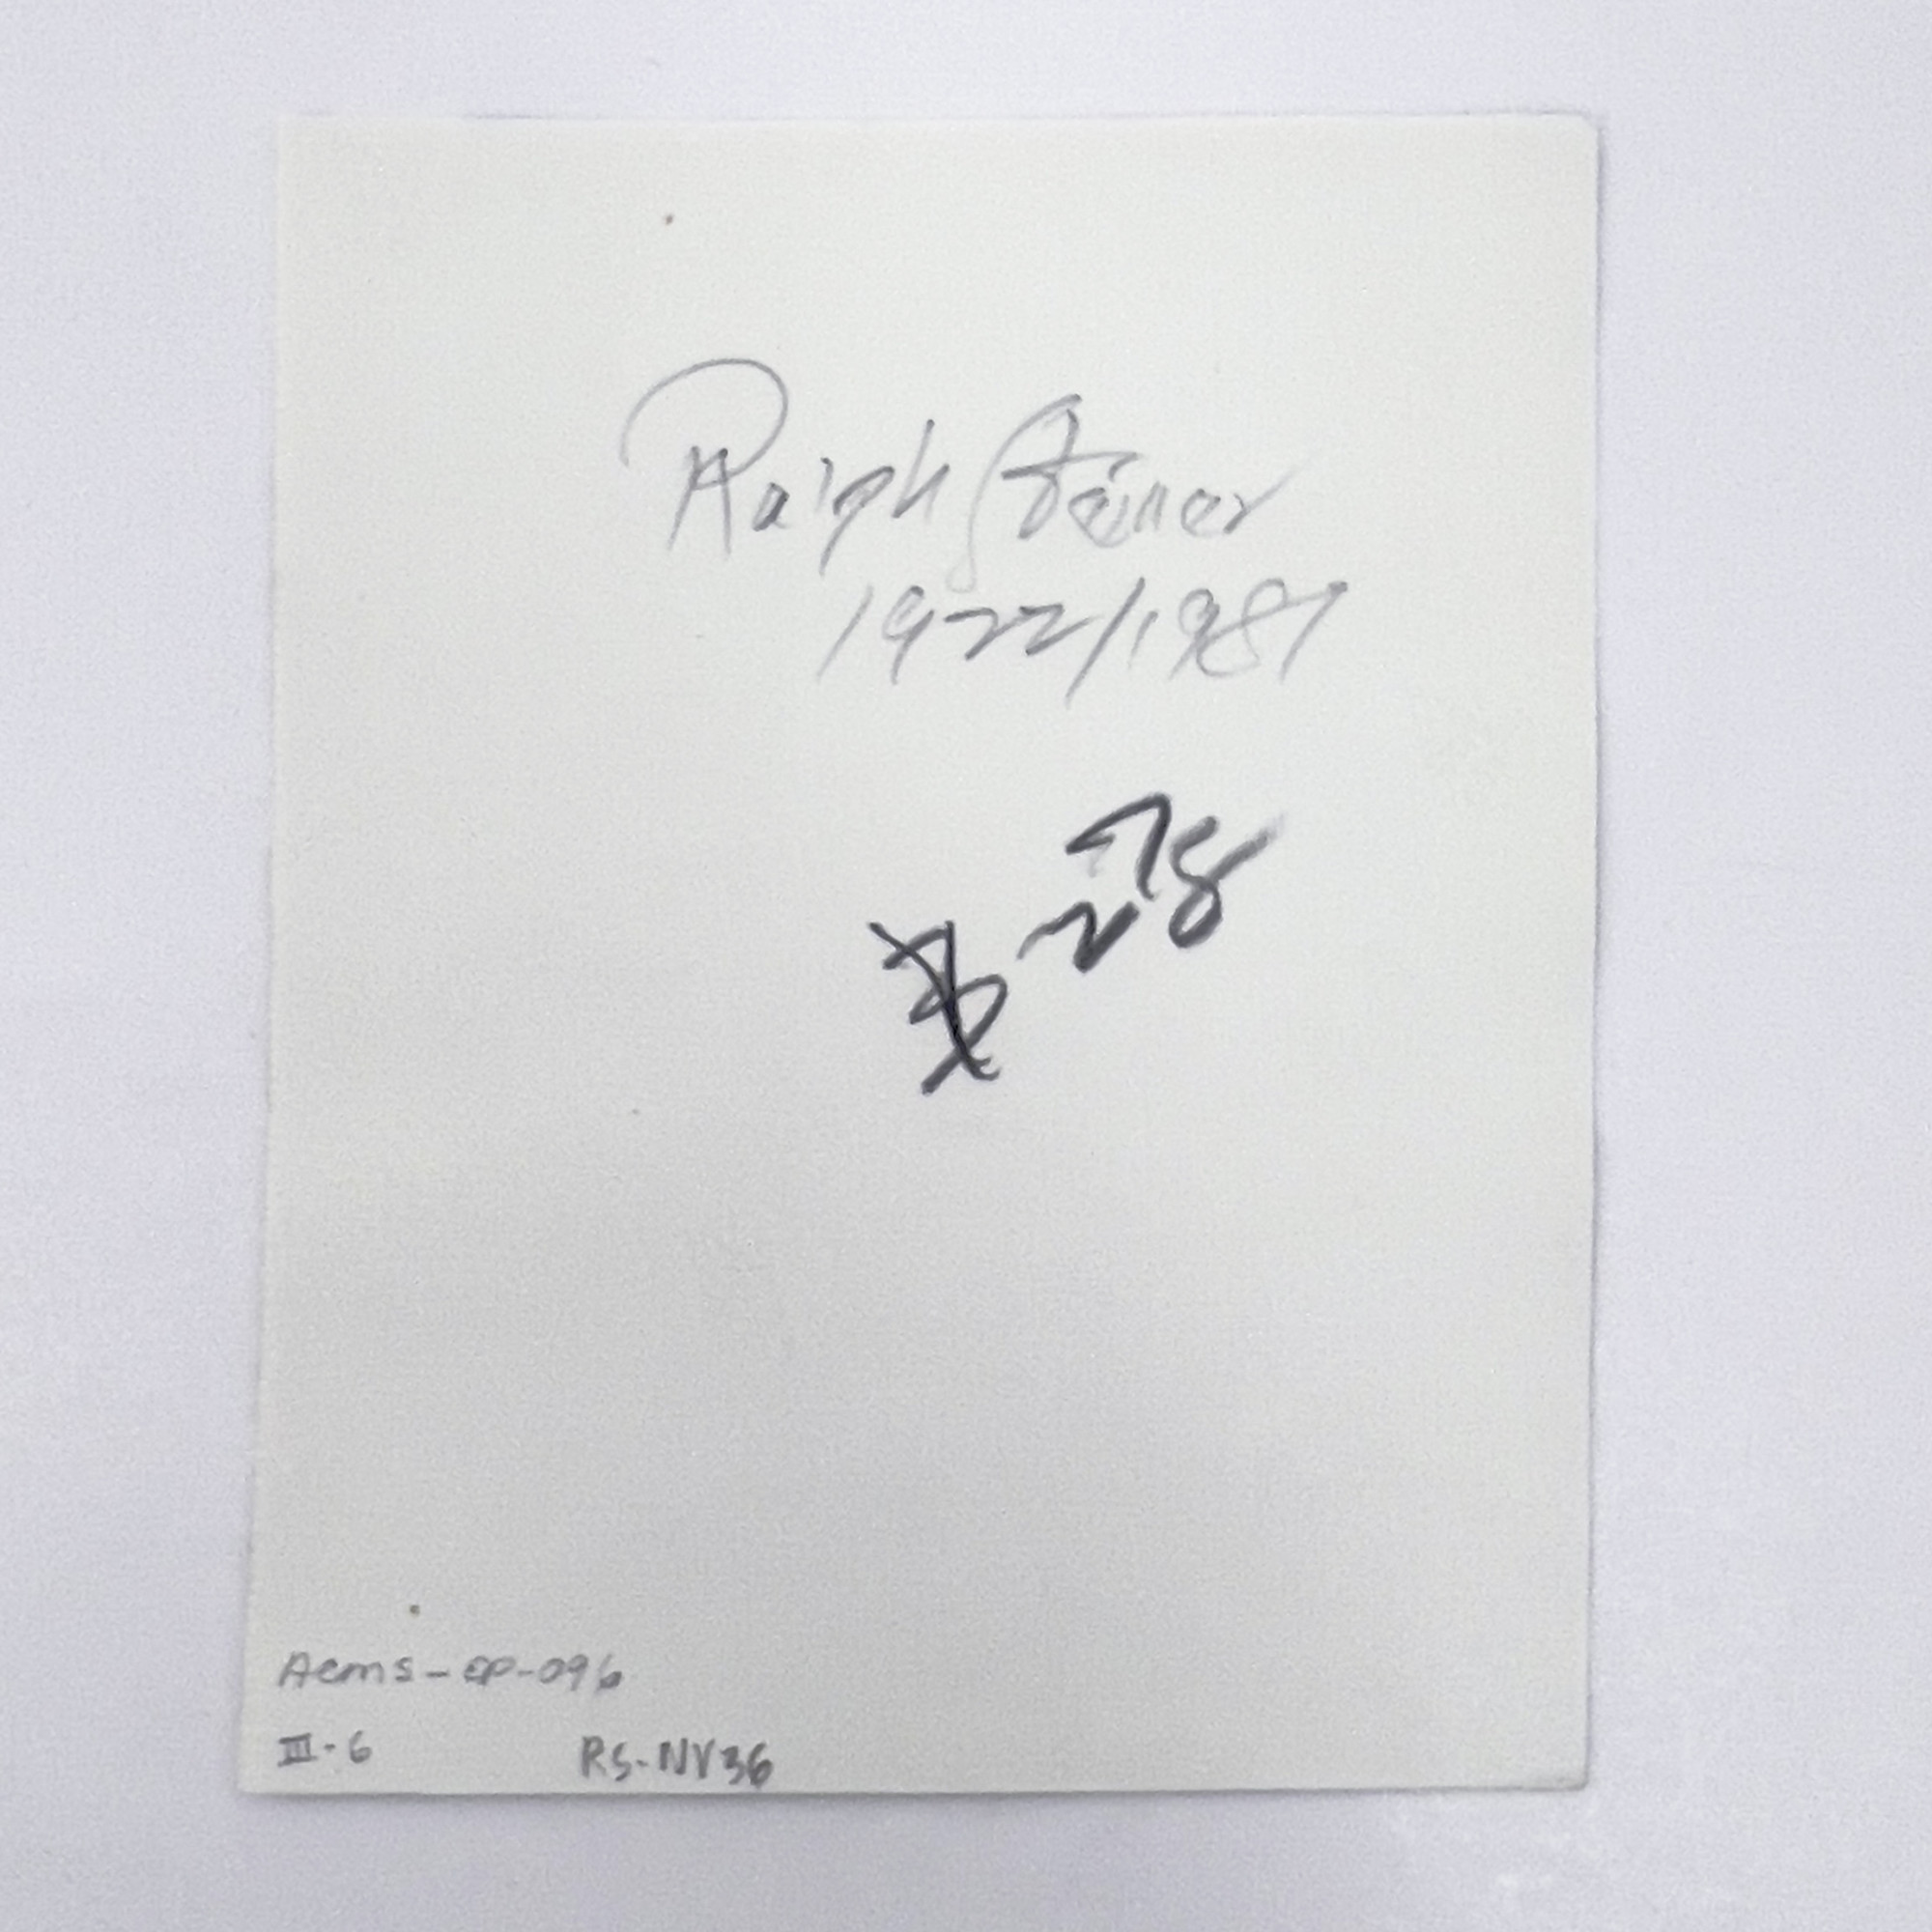 Ralph Steiner
1922/1981
28
Acms-EP-096
III-6 RS-NV36